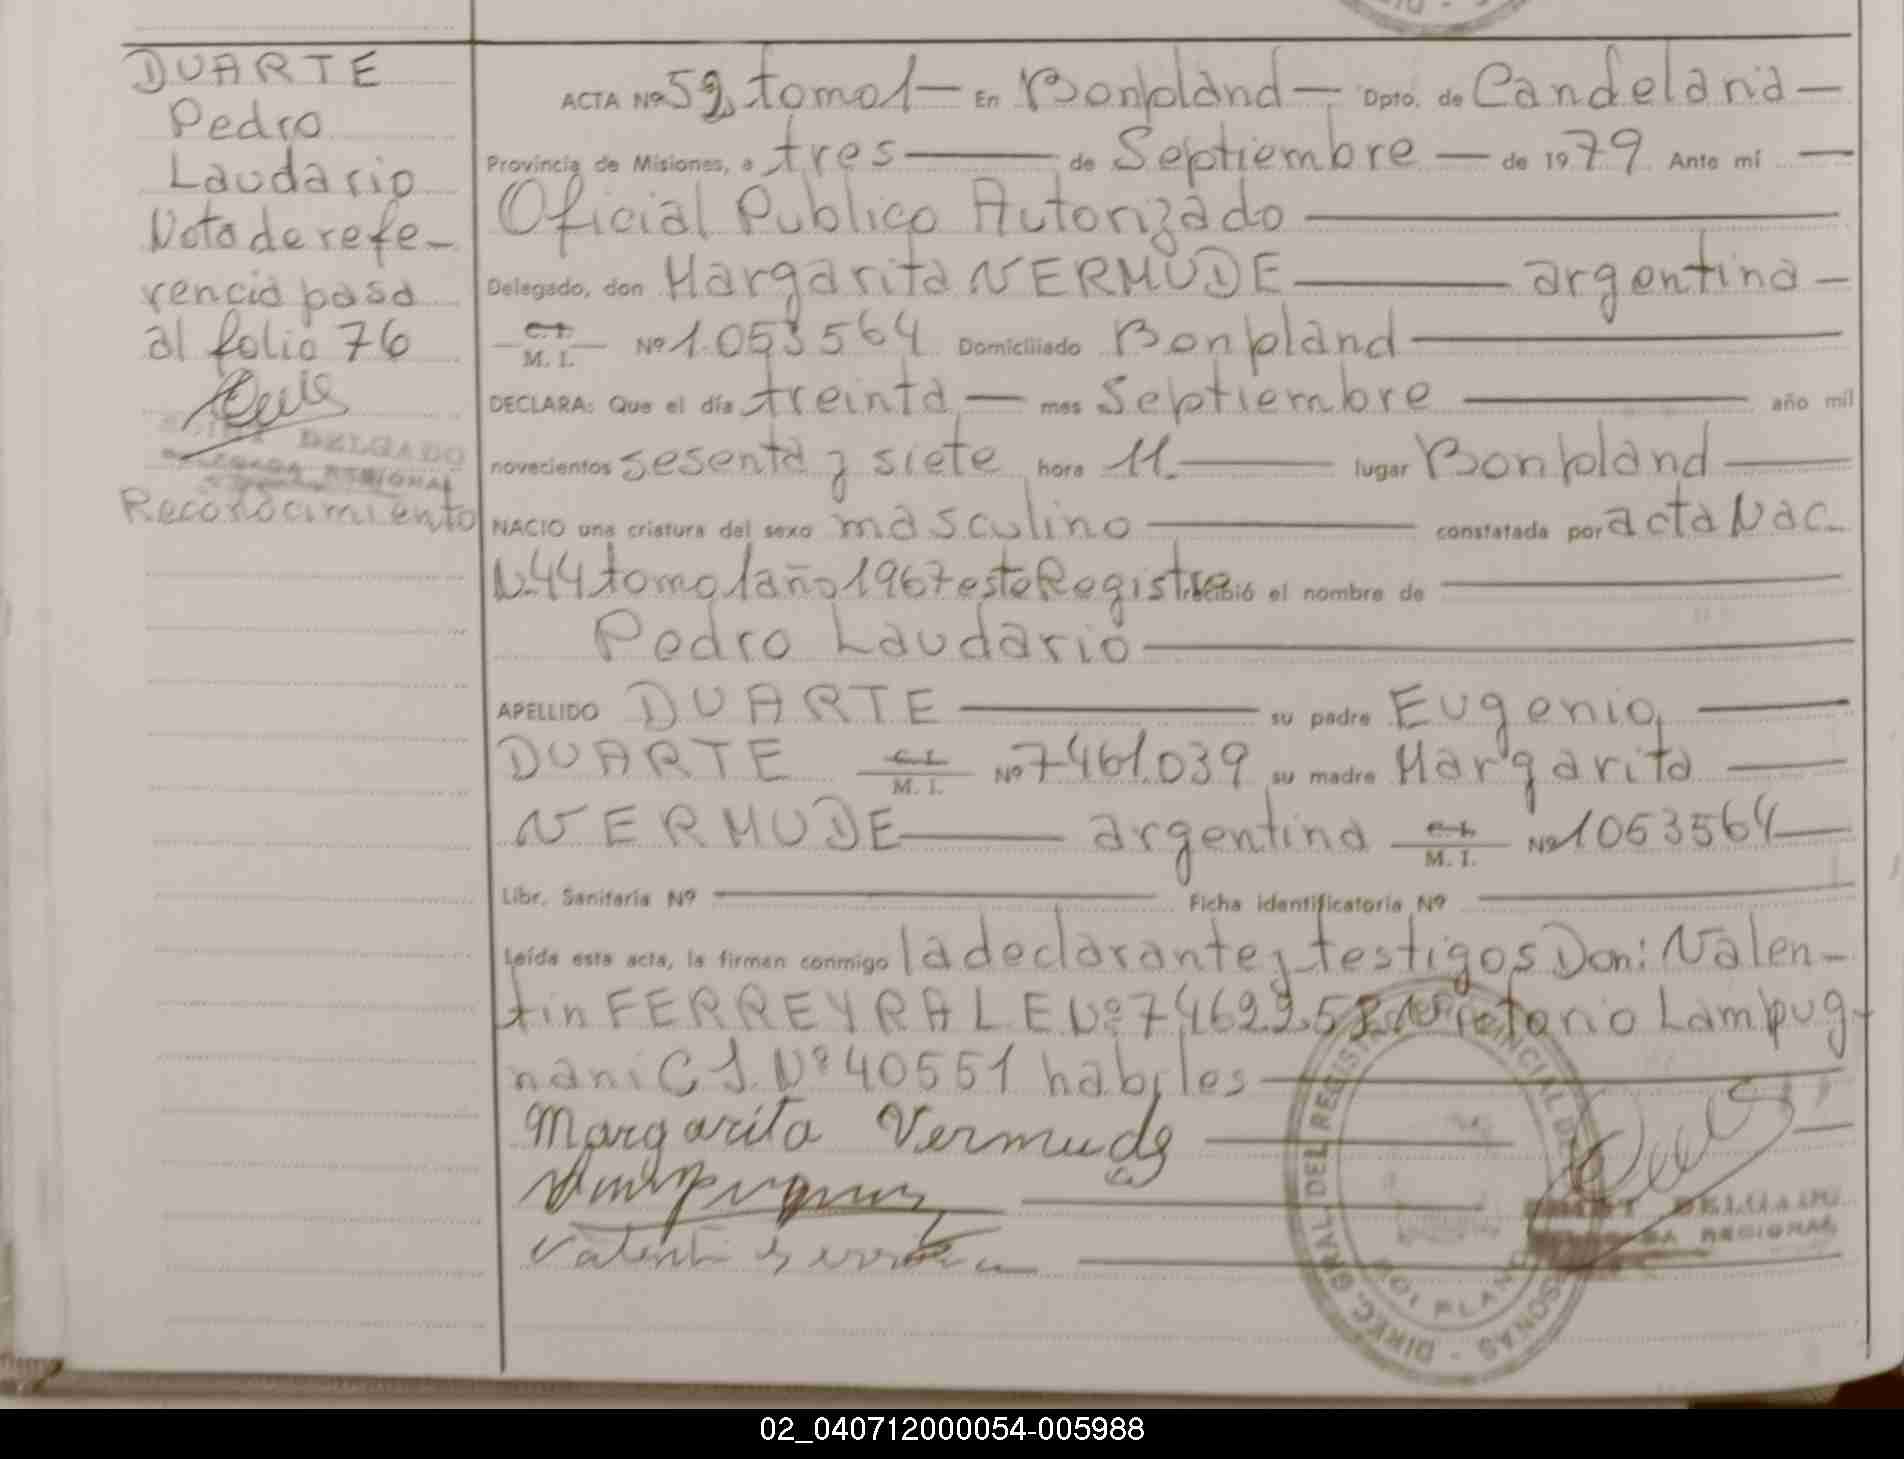 DUARTE
Pedro
Laudario
Nota de refe-
rencia pasa
al folio 76
DELGADO
DELEGADA REGIONAL
Reconocimiento
ACTA Nº 59, tomo 1 — En Bonpland — Dpto. de Candelaria —
Provincia de Misiones, a tres — de Septiembre — de 1979 Ante mí —
Oficial Publico Autorizado
Delegado, don Margarita VERMUDE — argentina —
C.I. M. I. Nº 1.053564 Domiciliado Bonpland
DECLARA: Que el día treinta — mes Septiembre — año mil
novecientos sesenta y siete hora 11. — lugar Bonpland —
NACIO una criatura del sexo masculino — constatada por acta Nac.
Nº 44 tomo 1 año 1967 este Registro recibió el nombre de —
Pedro Laudario
APELLIDO DUARTE — su padre Eugenio, —
DUARTE C.I. M. I. Nº 7461.039 su madre Margarita —
VERMUDE — argentina C.I. M. I. Nº 1053564 —
Libr. Sanitaria Nº — Ficha identificatoria Nº —
Leída esta acta, la firman conmigo la declarante y testigos Don: Valen-
tin FERREYRA L E Nº 746 Lampug-
nani C I. Nº 40551 habiles —
Margarita Vermude
DIREC. GRAL. DEL REGISTRO PROVINCIAL DE PERSONAS
BONPLAND
DELGADO
REGIONAL
02_040712000054-005988